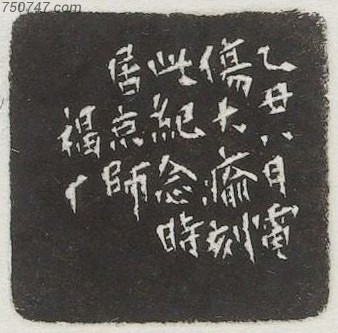 750747.com
乙丑八月電
傷大瘉刻
此紀念時
居京師
福厂